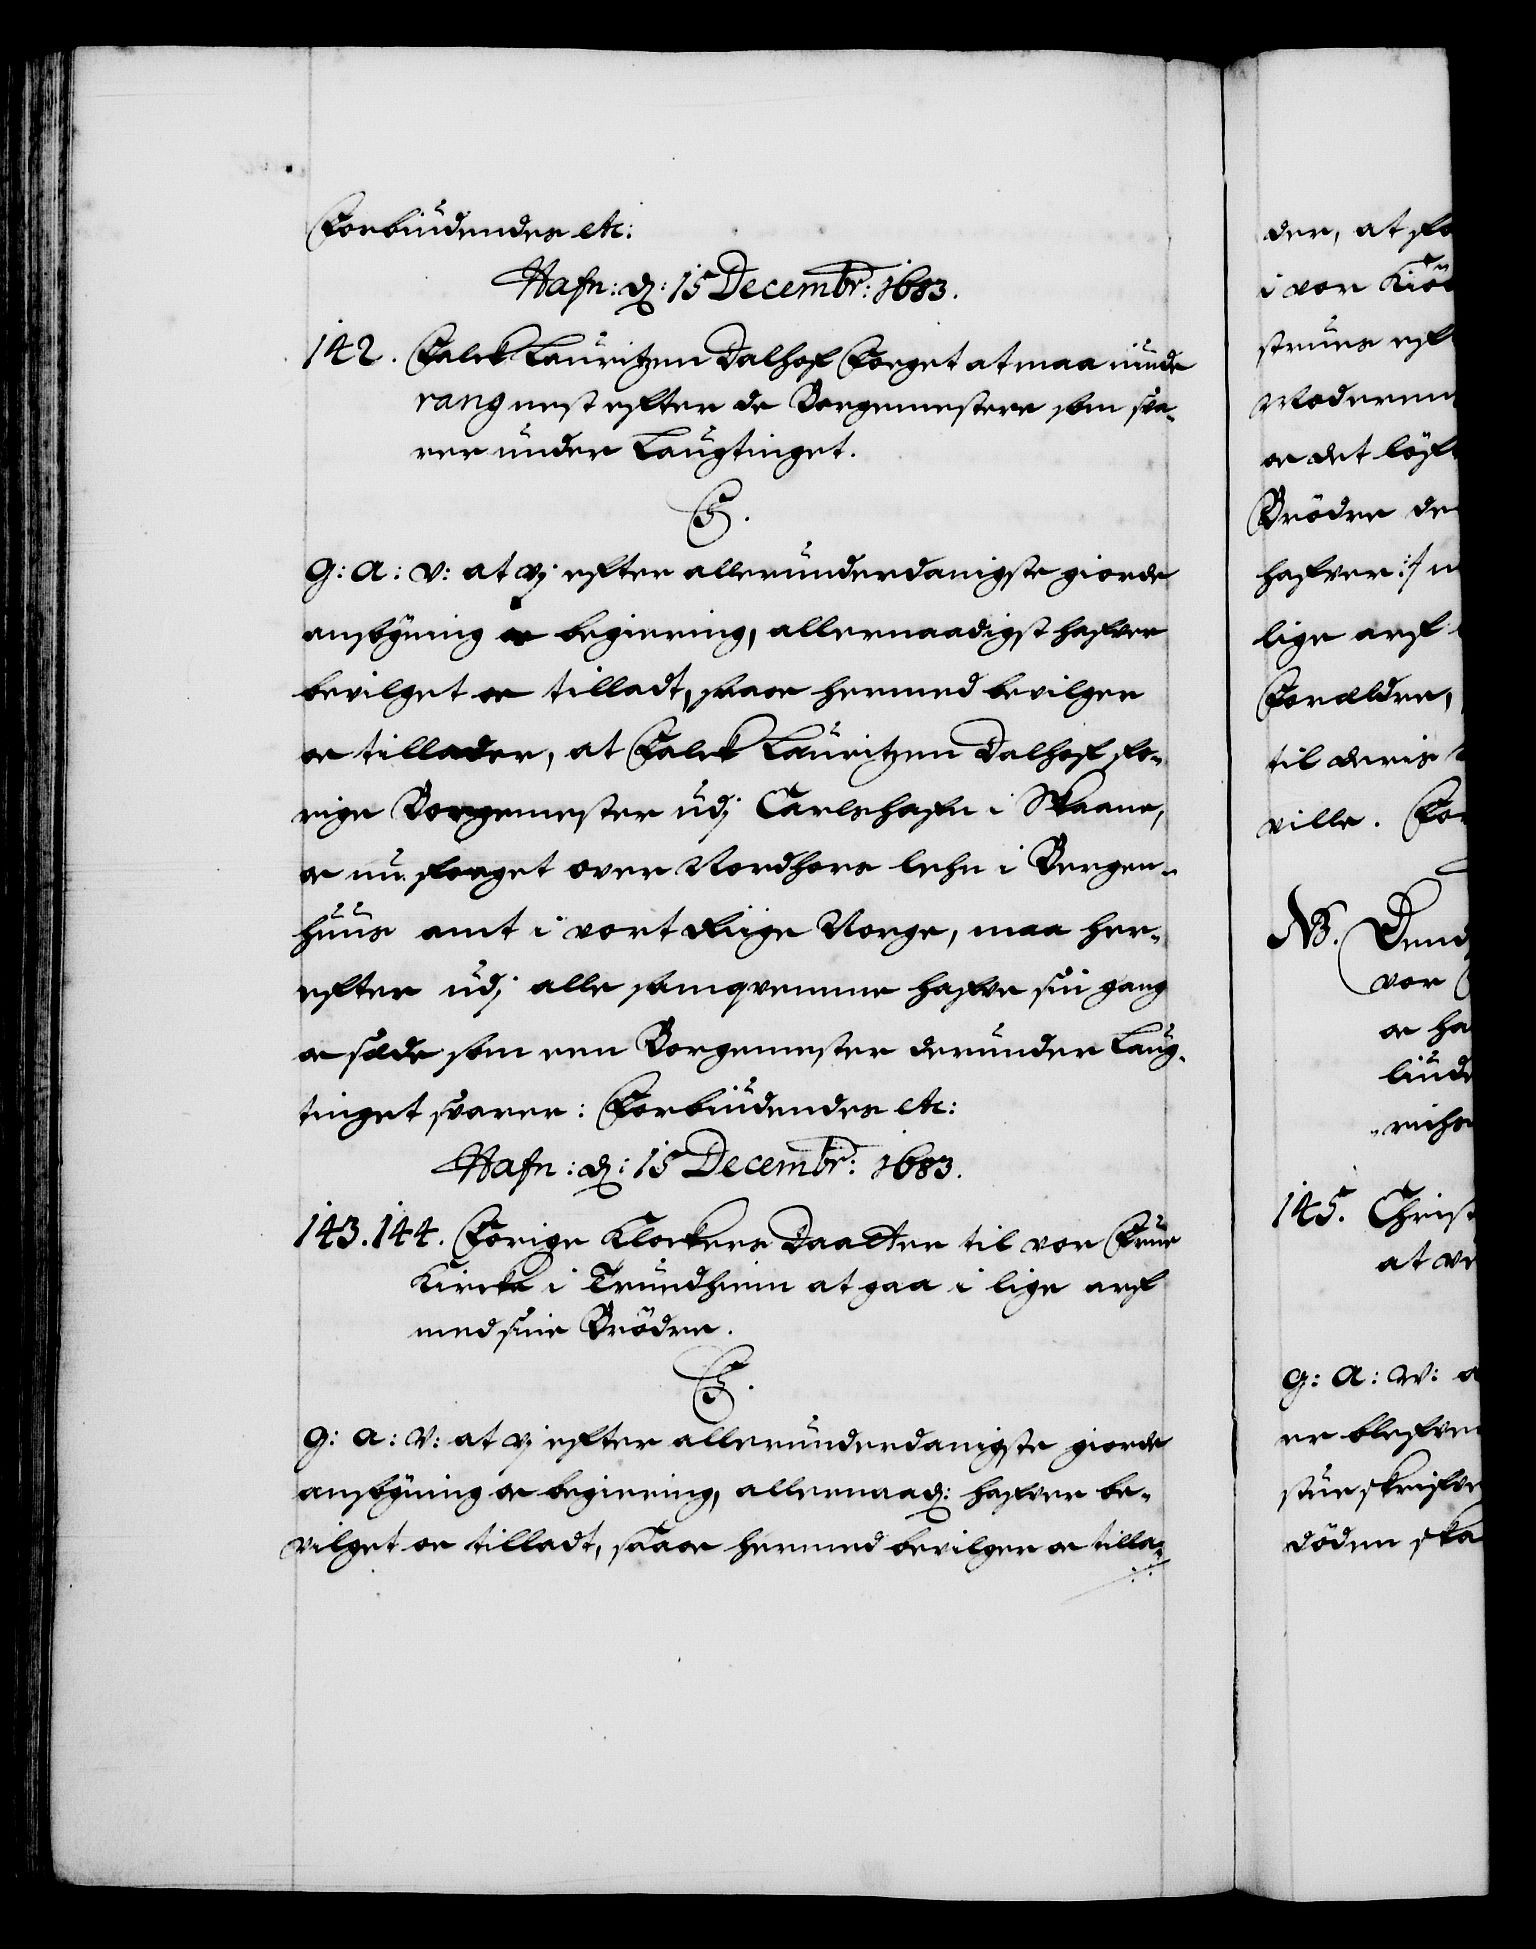 Forbiudendes etc:
Hafn: d: 15 Decembr: 1683.
142. Falck Lauritzen Dalhof Foeget at maa niude
rang nest efter de Borgemestere som sva-
rer under Laugtinget.
C5.
G: A: V: at vj efter allerunderdanigste giorde
ansögning oc begiering, allernaadigst hafver
bevilget oc tilladt, saa oc hermed bevilger
oc tillader, at Falck Lauritzen Dalhof fo-
rige Borgemester udj Carlshafn i Skaane,
oc nu foeget over Nordhors lehn i Bergen-
huus amt i vort Riige Norge, maa her-
efter udj alle samqvemme hafve sin gang
oc sæde som een Borgemester der under Laug-
tinget svarer: Forbiudendes etc:
Hafn: d: 15 Decembr: 1683.
143. 144. Forige Klockers Daatter til vor Frue
Kircke i Trundhiem at gaa i lige arf
med sine Brödre.
C5.
G: A: V: at vj efter allerunderdanigste giorde
ansögning oc begiering, allernaad: hafver be-
vilget oc tilladt, saa oc hermed bevilger oc tilla-
der, at
i vor
struis
Moderen
oc det
Brödre
hafver
lige arf
Forældre,
til deris
ville.
NB.
vor
oc
145. Christ
at
G: A: V:
er blefven
döden